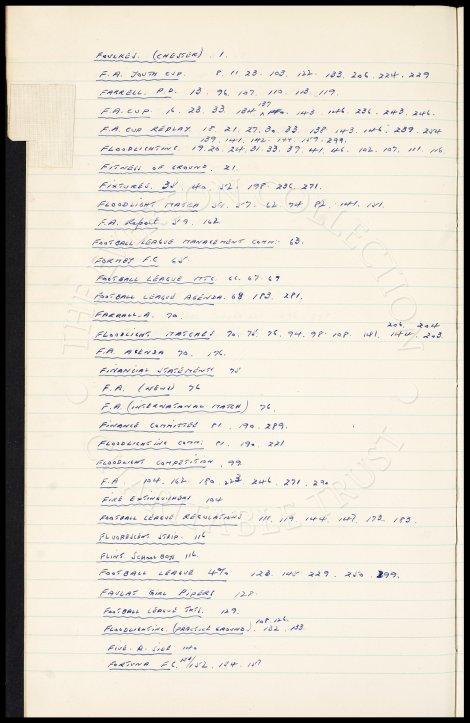 FOULKES. (CHESTER). 1.
F.A. YOUTH CUP. 8. 11. 23. 103. 122. 133. 206. 224. 229
FARRELL. P.D. 13. 96. 107. 110. 113. 119.
F.A. CUP. 16. 23. 33. 134 137 140. 143. 146. 236. 243. 246.
F.A. CUP REPLAY. 18. 21. 27. 30. 33. 138 143. 146. 239. 254
139. 141. 142. 144. 157. 299.
FLOODLIGHTING. 19. 20. 24. 31. 33. 39. 41. 46. 102. 107. 111. 116
FITNESS OF GROUND. 21.
FIXTURES. 35. 40. 52. 198. 236. 271.
FLOODLIGHT MATCH 51. 57. 62. 74 82. 141. 151.
F.A. Report 59. 162
FOOTBALL LEAGUE MANAGEMENT COMM: 63.
FORMBY F.C. 65.
FOOTBALL LEAGUE MTG. 66. 67. 69
FOOTBALL LEAGUE AGENDA. 68 183. 281.
FARRALL. A. 70.
206. 204
FLOODLIGHT MATCHES 70. 75. 76. 94. 98. 108. 181. 203.
F.A. AGENDA 70. 176.
FINANCIAL STATEMENTS 75
F.A. (NEWS) 76
F.A. (INTERNATIONAL MATCH) 76.
FINANCE COMMITTEE 81. 190. 289.
FLOODLIGHTING COMM: 81. 190. 221
FLOODLIGHT COMPETITION. 99
F.A. 104. 162. 180. 223 246. 271. 290
FIRE EXTINGUISHERS 104
FOOTBALL LEAGUE REGULATIONS 111. 119. 144. 147. 173. 183.
FLUORESCENT STRIP. 116
FLINT SCHOOLBOYS 116.
FOOTBALL LEAGUE 4% 123. 145 229. 250 299.
GIRL PIPERS 128.
FOOTBALL LEAGUE 129.
108. 126.
FLOODLIGHTING. (PRACTICE GROUND). 132. 133.
FIVE. A. SIDE 140
FORTUNA F.C. 152. 154. 157
THE COLLECTION
CHARITABLE TRUST